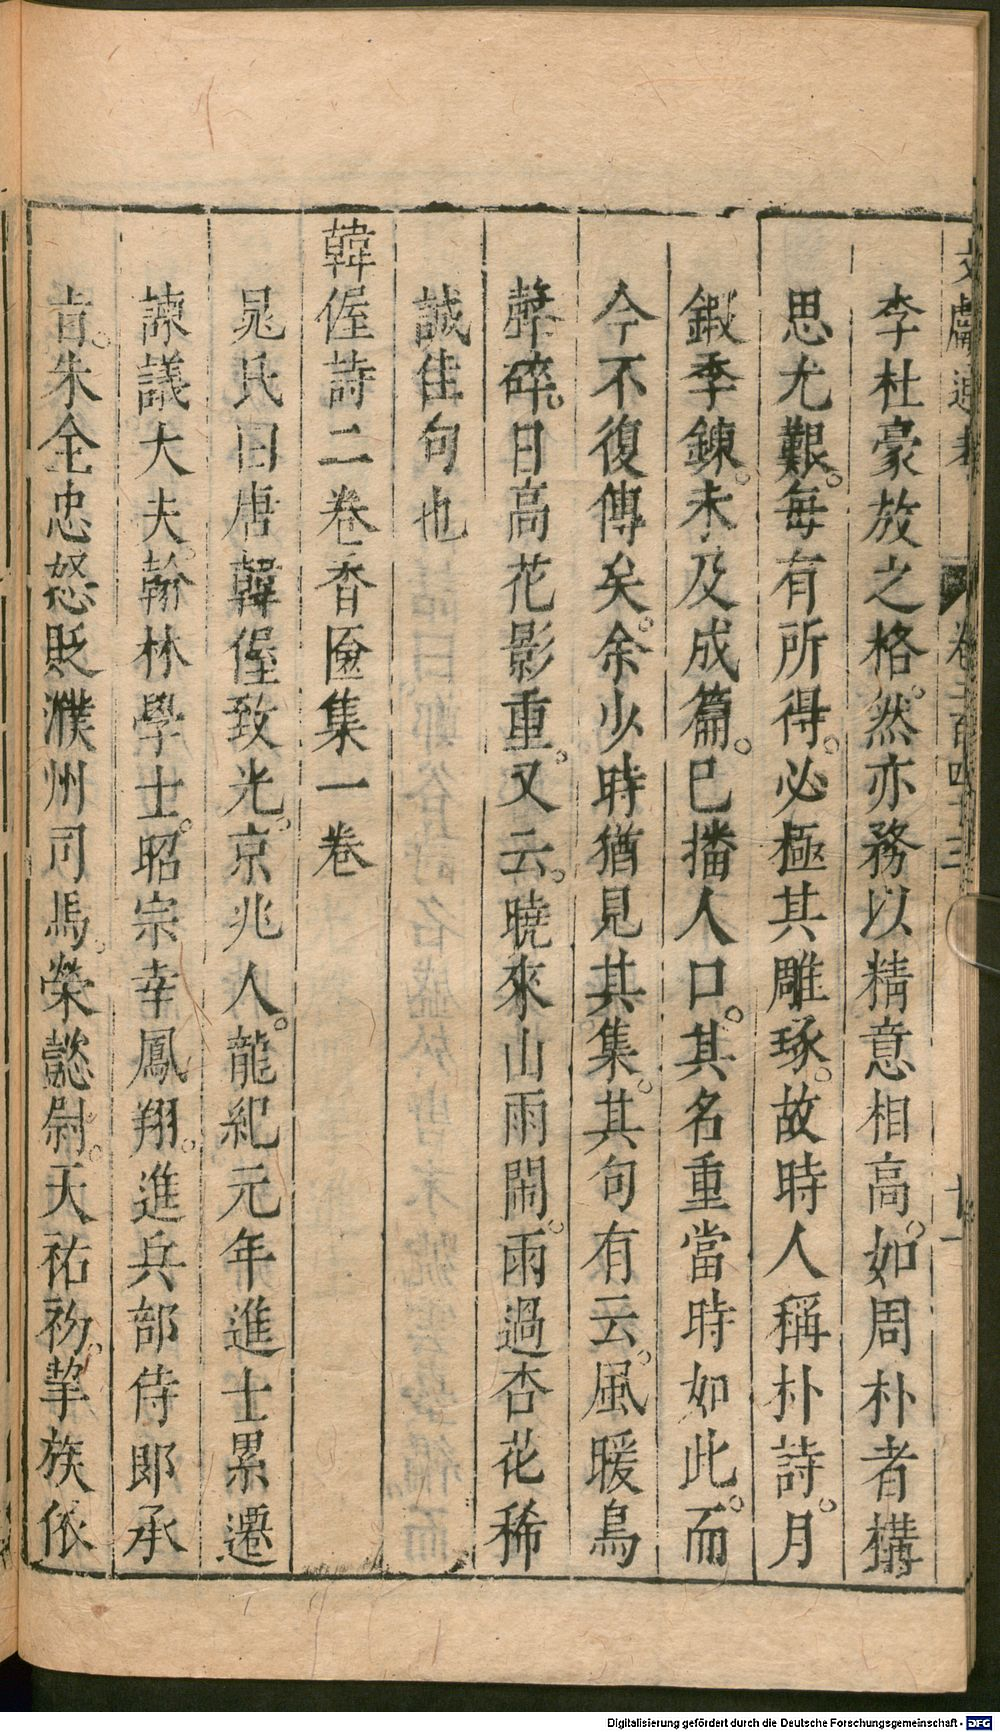 文獻通考 卷二百四十三 十一
李杜豪放之格。然亦務以精意相高。如周朴者構
思尤艱。每有所得。必極其雕琢。故時人稱朴詩。月
鍜季鍊。未及成篇。已播人口。其名重當時如此。而
今不復傳矣。余少時猶見其集。其句有云。風暖鳥
聲碎。日高花影重。又云。曉來山雨鬧。雨過杏花稀
誠佳句也
韓偓詩二卷香匳集一卷
晁氏曰唐韓偓致光。京兆人。龍紀元年進士累遷
諫議大夫。翰林學士。昭宗幸鳳翔。進兵部侍郎承
旨。朱全忠怒貶濮州司馬。榮懿尉。天祐初。挈族依
Digitalisierung gefördert durch die Deutsche Forschungsgemeinschaft - DFG